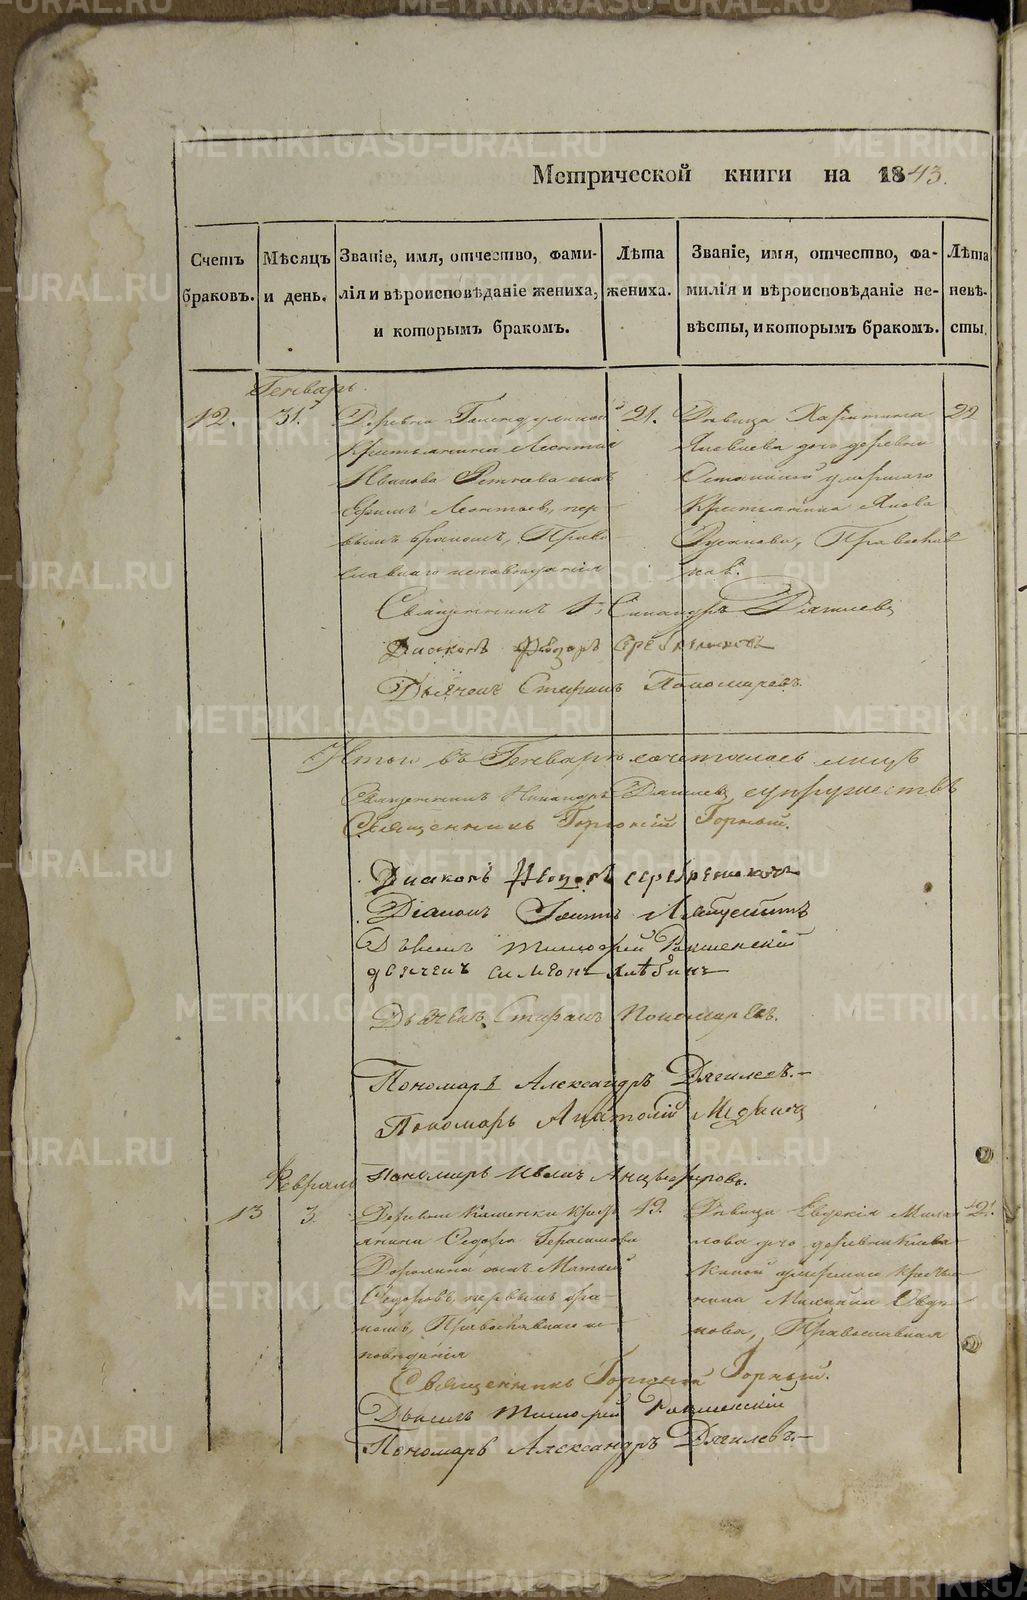 Метрической книги на 1843.
Счетъ браковъ.
Мѣсяцъ и день.
Званіе, имя, отчество, фами-
лія и вѣроисповѣданіе жениха,
и которымъ бракомъ.
Лѣта жениха.
Званіе, имя, отчество, фа-
милія и вѣроисповѣданіе не-
вѣсты, и которымъ бракомъ.
Лѣта невѣ-
сты.
Генварь.
12. 31.
Деревни
Крестьянина Леонтія
Иванова сынъ
Ефимъ Леонтьевъ, пер-
вымъ бракомъ, Право
славнаго исповѣданія
21.
Дѣвица Харитина
Яковлева дочь деревни
умершаго
Крестьянина Якова
Русакова, Православ
ная.
22
Священникъ Никандръ Дягилевъ
Діаконъ Федоръ Серебренниковъ
Дьячекъ Стефанъ Пономаревъ.
Итого въ Генварѣ сочеталось лицъ
Священникъ Никандръ Дягилевъ супружествъ
Священникъ Горгоній Горный.
Диаконъ Федоръ Серебрениковъ
Діаконъ Іоаннъ
Дьячекъ Тимофей
дьячекъ Симеонъ Хлѣбинъ
Дьячекъ Стефанъ Пономаревъ.
Пономарь Александръ Дягилевъ.—
Пономарь Анатолій
Пономарь Иванъ Анцыферовъ.
Февраль
13 3.
Деревни Каменки Кресть
янина Сидора Герасимова
сынъ Матвей
Сидоровъ, первымъ бра-
комъ, Православнаго ис-
повѣданія
19.
Дѣвица Евдокія Михай
лова дочь деревни
умершаго Крестья-
нина Михаила
Православная
21.
Священникъ Горгоній Горный.
Дьячекъ Тимофей
Пономарь Александръ Дягилевъ.—
METRIKI.GASO-URAL.RU